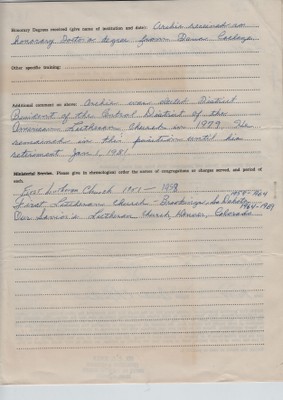 Honorary Degrees received (give name of institution and date): Archie received an
honorary Doctor's degree from Dana College
Other specific training:
Additional comment on above: Archie was elected District
President of the Central District of the
American Lutheran Church in 1979. He
remained in this position until his
retirement Jan 1, 1981.
Ministerial Service. Please give in chronological order the names of congregations or charges served, and period of
each.
Church 1951 - 1958
1958-1964
First Lutheran Church - Brookings, So Dakota
1964-1989
Our Savior's Lutheran Church, Denver, Colorado